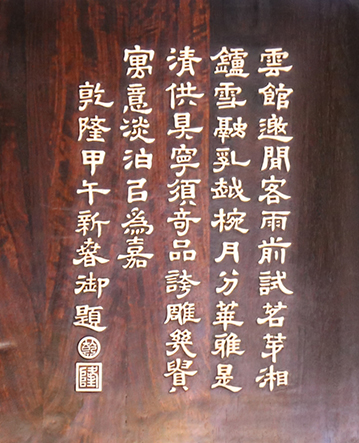 雲館邀閒客雨前試茗芽湘
鑪雪融乳越椀月分華雅是
清供具寧須奇品誇雕幾賞
寓意淡泊㠯為嘉
乾隆甲午新春御題
乾
隆